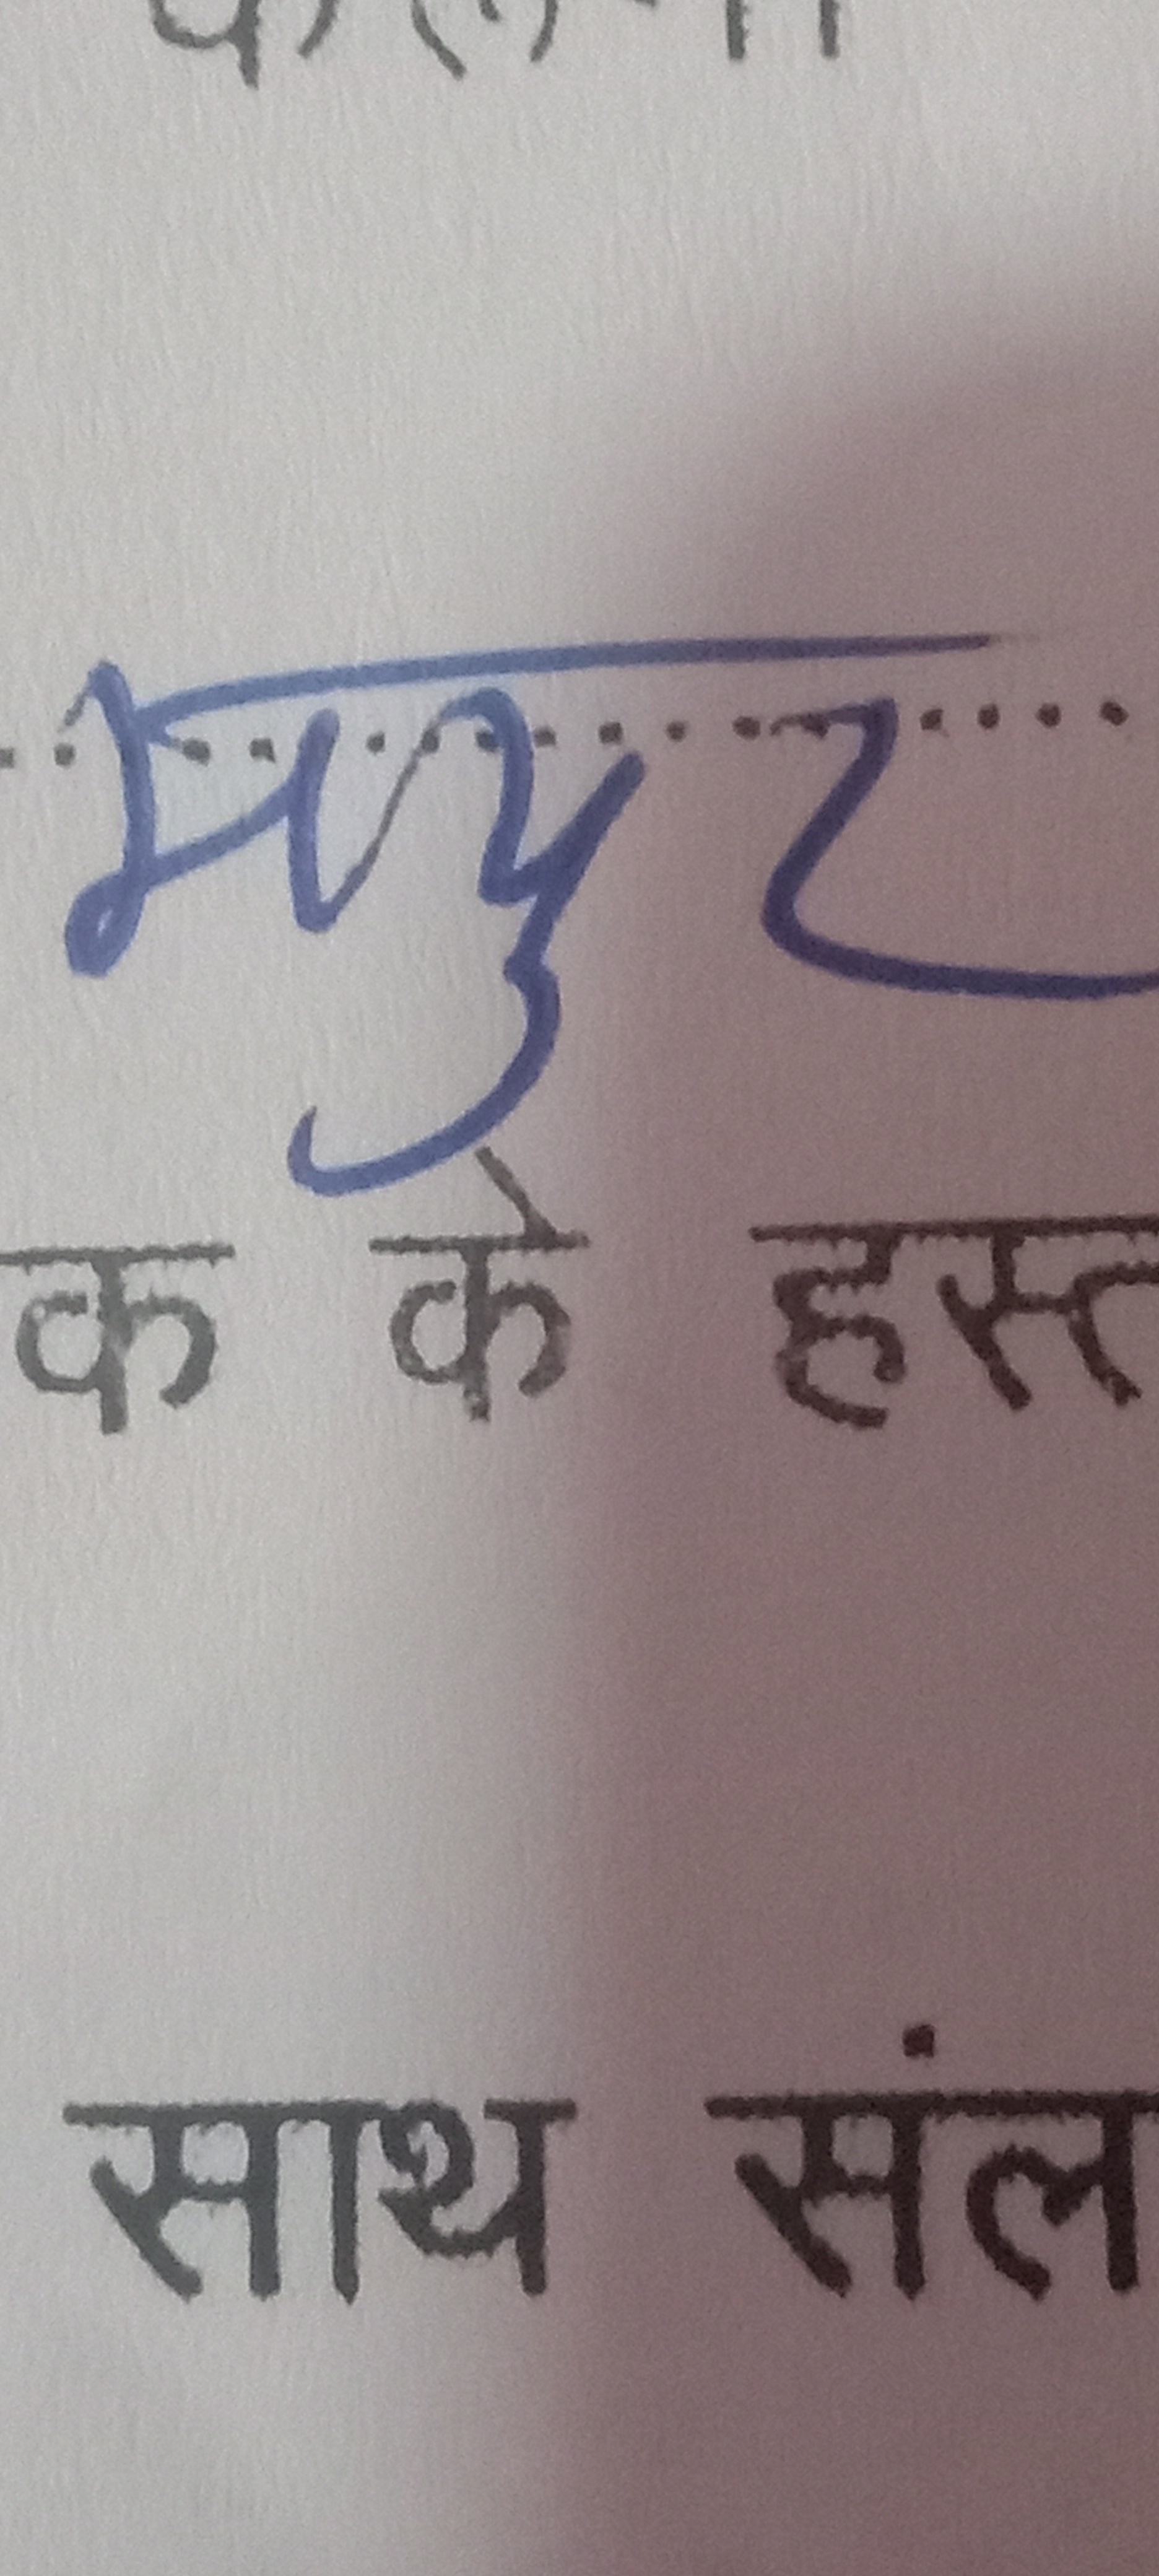 मयुर
क के हस्त
साथ संल